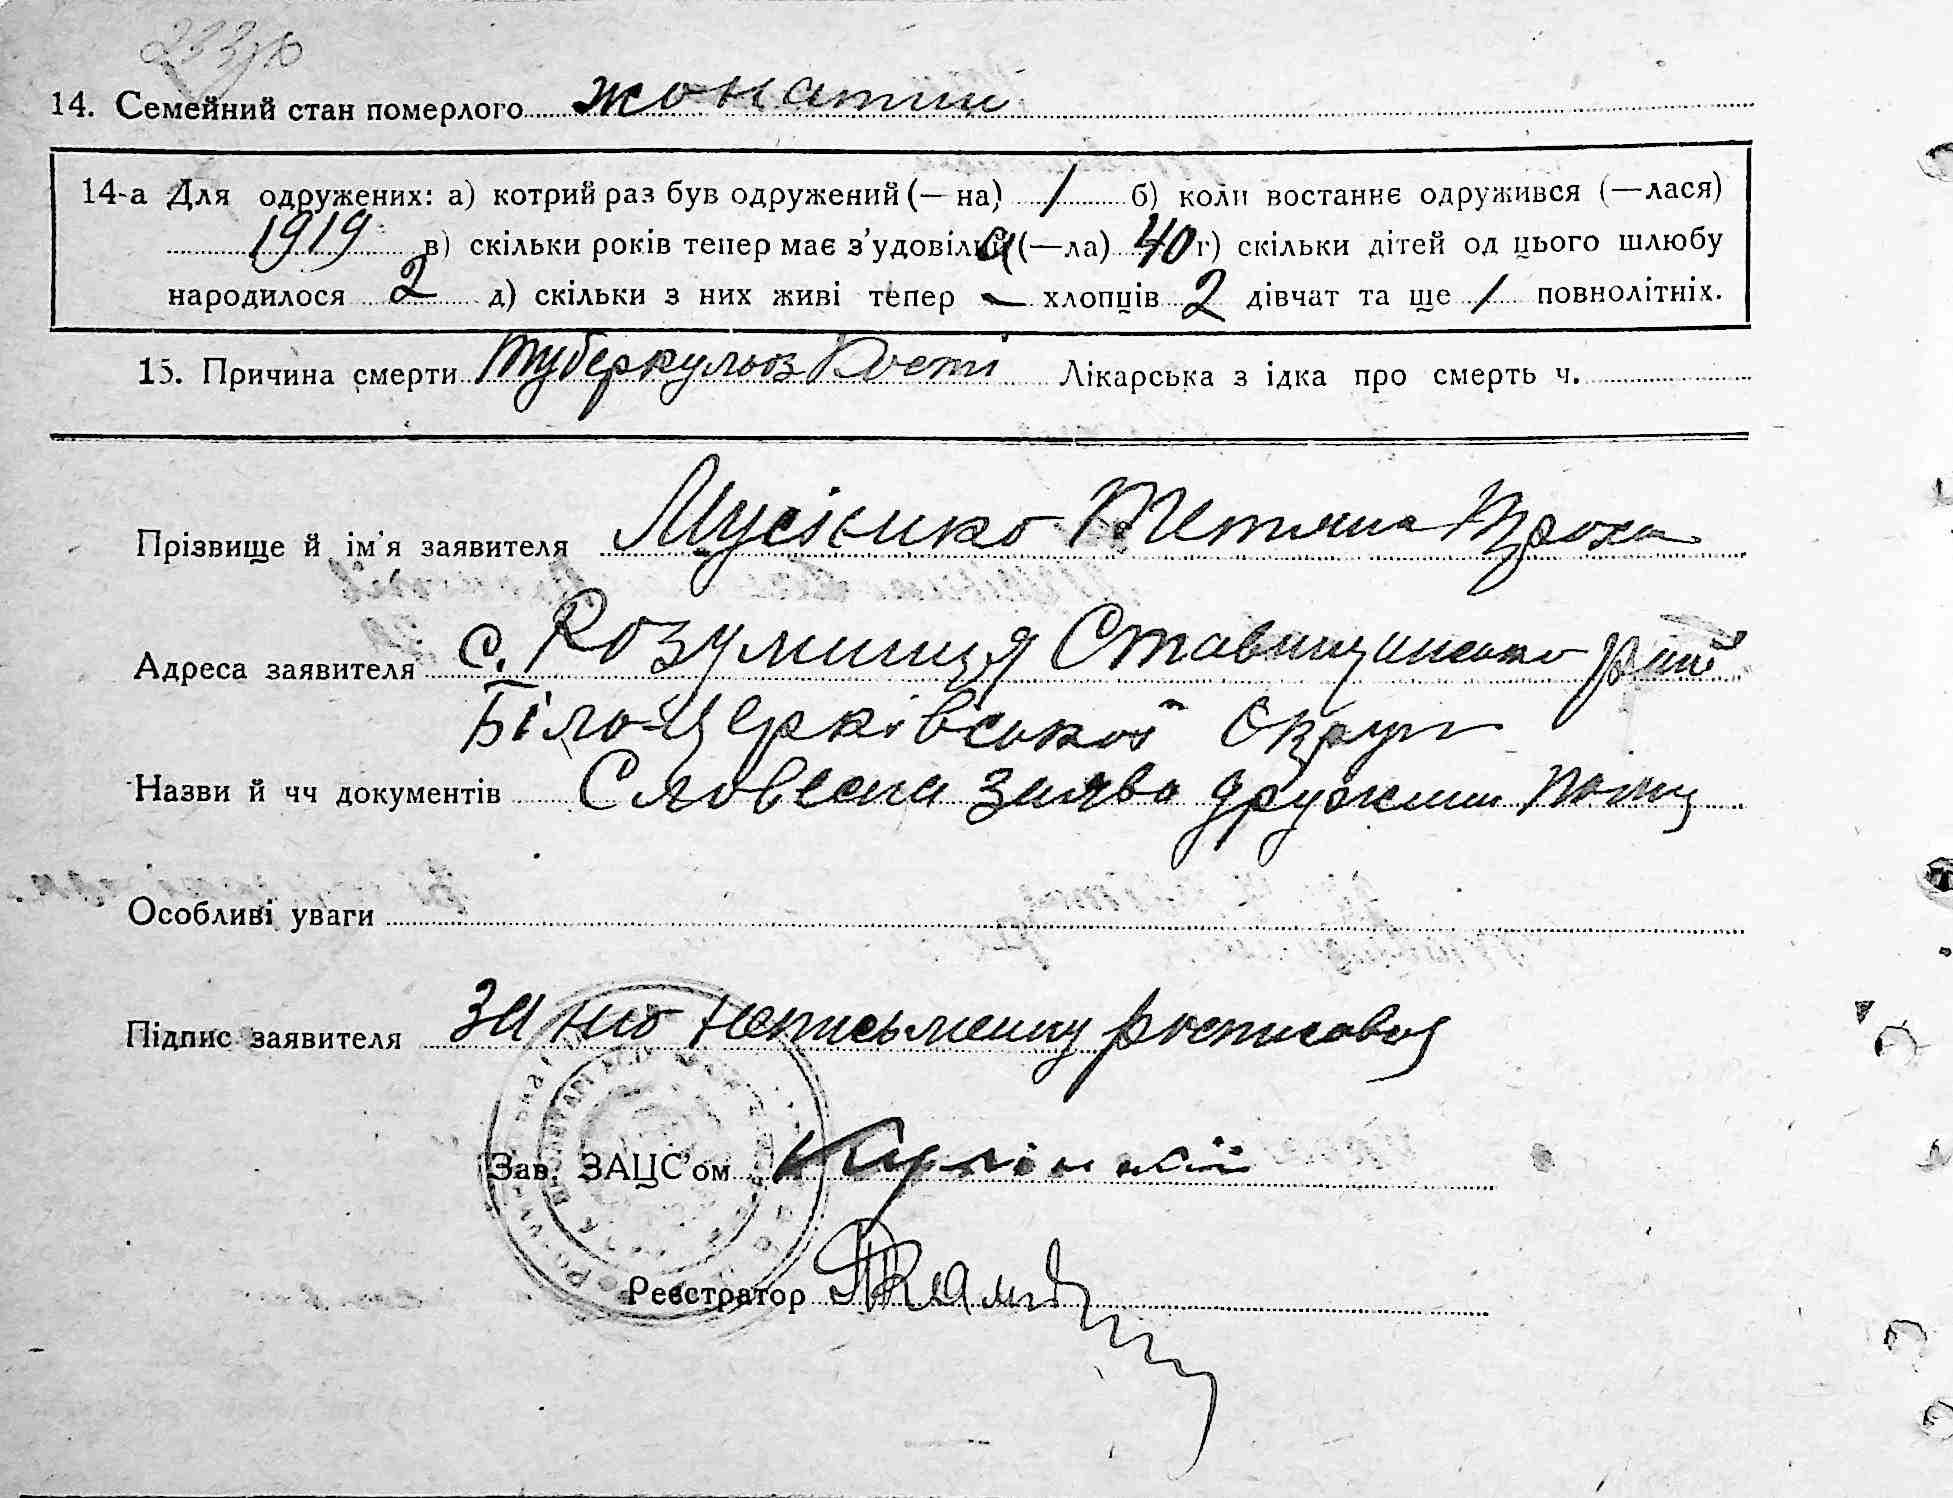 233зв
14. Семейний стан померлого жонатий
14-а Для одружених: а) котрий раз був одружений (— на) 1 б) коли востаннє одружився (—лася)
1919 в) скільки років тепер має з'удовілий (—ла) 40 г) скільки дітей од цього шлюбу
народилося 2 д) скільки з них живі тепер — хлопців 2 дівчат та ще 1 повнолітніх.
15. Причина смерти туберкульоз кості Лікарська з ідка про смерть ч.
Прізвище й ім'я заявителя Мусієнко Тетяна Проха
Адреса заявителя с. Розумниця Ставищансько рай
Біло-Церківської Округи
Назви й чч документів Словесна заява дружини
Особливі уваги
Підпис заявителя За неписьменну росписався
Зав. ЗАЦС'ом
Реєстратор